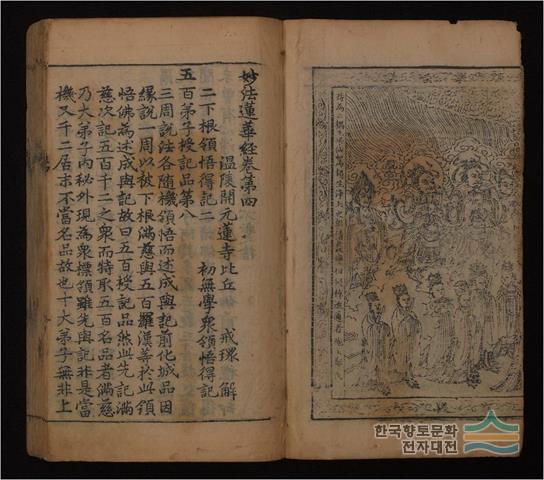 妙法蓮華經卷第四
溫陵開元蓮寺比丘 戒環 解
二下根領悟得記二 初無學眾領悟得記
五百弟子授記品第八
三周說法各隨機領悟而述成與記前化城品因
緣說一周以被下根滿慈與五百羅漢等於此領
悟佛為述成與記故曰五百授記品然此先記滿
慈次記五百千二之眾而特取五百名品者滿慈
乃大弟子內秘外現為眾標領雖先與記非是當
機又千二居末不當名品故也十大弟子無非上
한국향토문화
전자대전